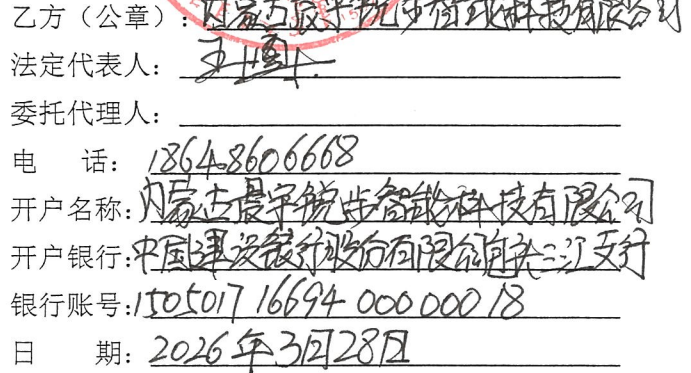 乙方（公章）：内蒙古晟宇锐步智能科技有限公司
法定代表人：王
委托代理人：
电　　话：18648606668
开户名称：内蒙古晟宇锐步智能科技有限公司
开户银行：中国建设银行股份有限公司包头三江支行
银行账号：15050171669400000018
日　　期：2026年3月28日